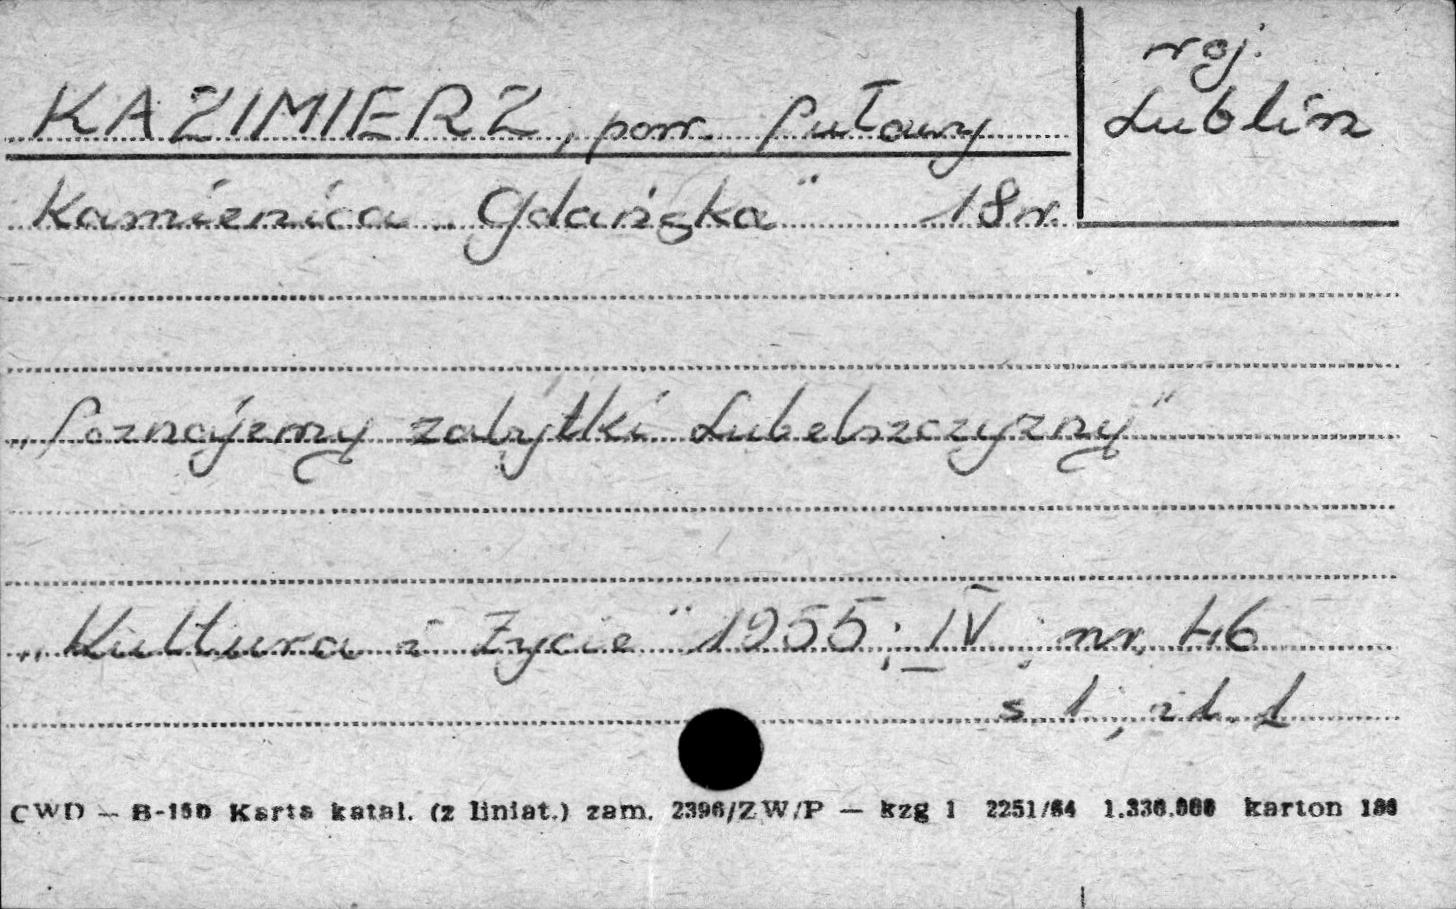 woj.
Lublin
KAZIMIERZ, pow. Puławy
Kamienica „Gdańska" 18 w.
„Poznajemy zabytki Lubelszczyzny"
„Kultura i Życie" 1955; IV; nr 46
s. 1; il. 1
CWD — B-150 Karta katal. (z liniat.) zam. 2396/ZW/P — kzg 1 2251/64 1.330.000 karton 180